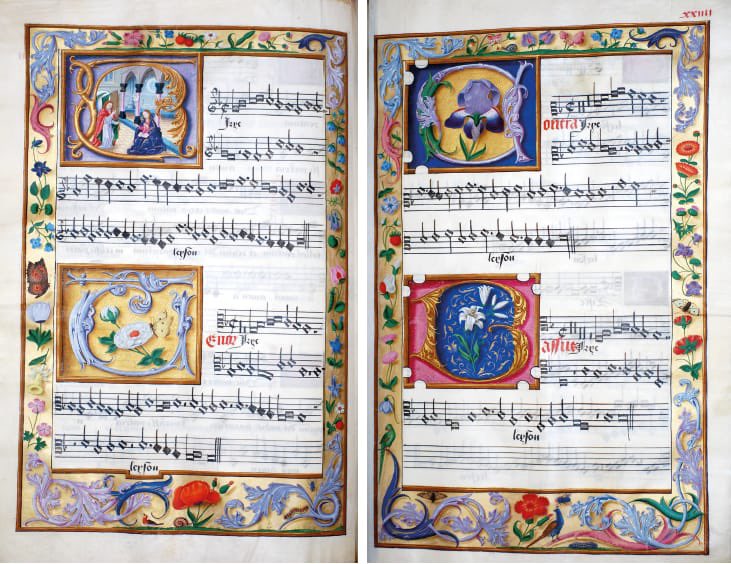 xxiiii
kyrie
leyson
enor kyrie
leyson
ontra kyrie
leyson
assus kyrie
leyson